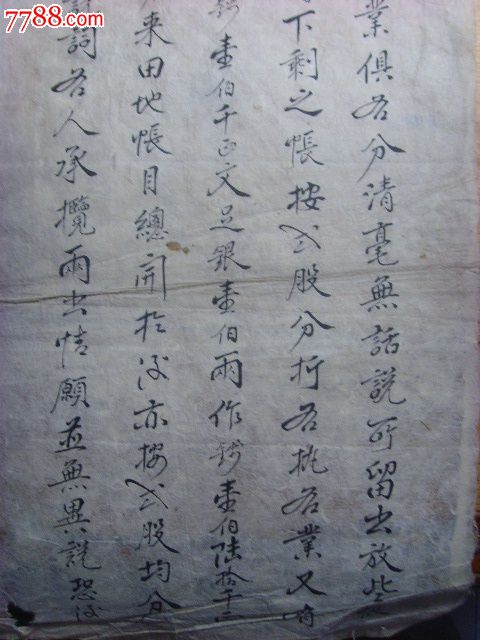 7788.com
業俱各分清毫無話說所留出放些
下剩之帳按弍股分析各執各業又
錢壹伯千正文足銀壹伯兩作錢壹伯陸拾千
来田地帳目總開於後亦按弍股均分
詞各人承攬兩出情願並無異說恐後